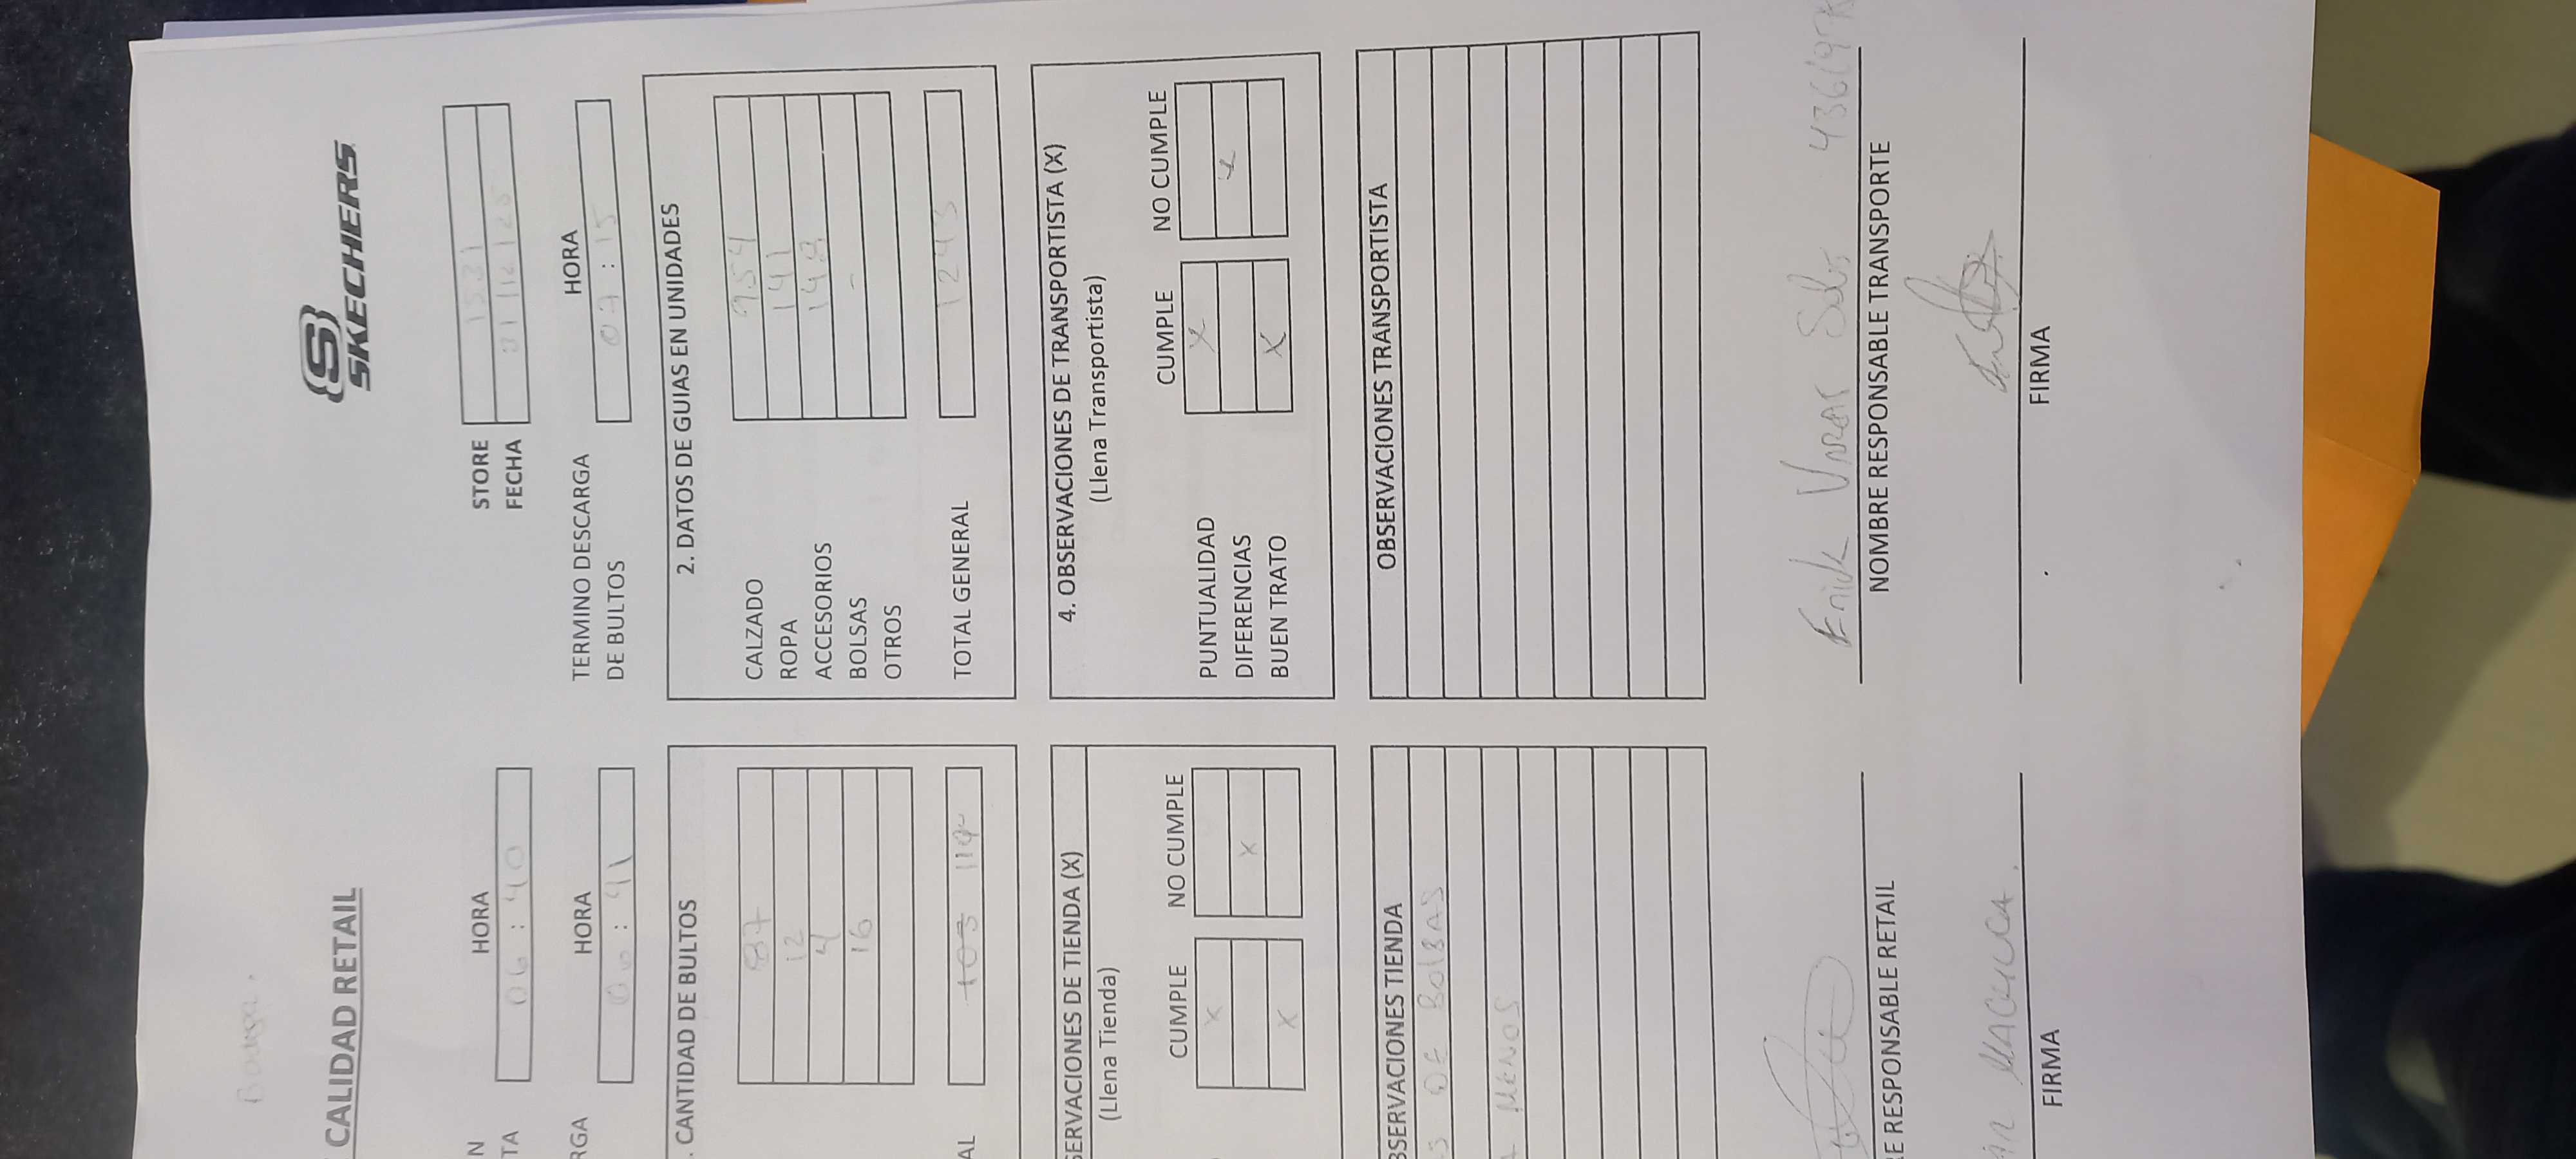 CALIDAD RETAIL
SKECHERS
STORE 1521
FECHA 01/12/25
N
TA
HORA
06:40
RGA
HORA
06:41
TERMINO DESCARGA
DE BULTOS
HORA
07:15
. CANTIDAD DE BULTOS
87
12
4
16
AL
103 119
2. DATOS DE GUIAS EN UNIDADES
CALZADO 954
ROPA 141
ACCESORIOS 148
BOLSAS -
OTROS
TOTAL GENERAL 1243
SERVACIONES DE TIENDA (X)
(Llena Tienda)
CUMPLE NO CUMPLE
X
X
X
4. OBSERVACIONES DE TRANSPORTISTA (X)
(Llena Transportista)
CUMPLE NO CUMPLE
PUNTUALIDAD X
DIFERENCIAS X
BUEN TRATO X
BSERVACIONES TIENDA
S DE BOLSAS
A MENOS
OBSERVACIONES TRANSPORTISTA
RE RESPONSABLE RETAIL
MACHUCA.
FIRMA
Erick Vargas
NOMBRE RESPONSABLE TRANSPORTE
FIRMA